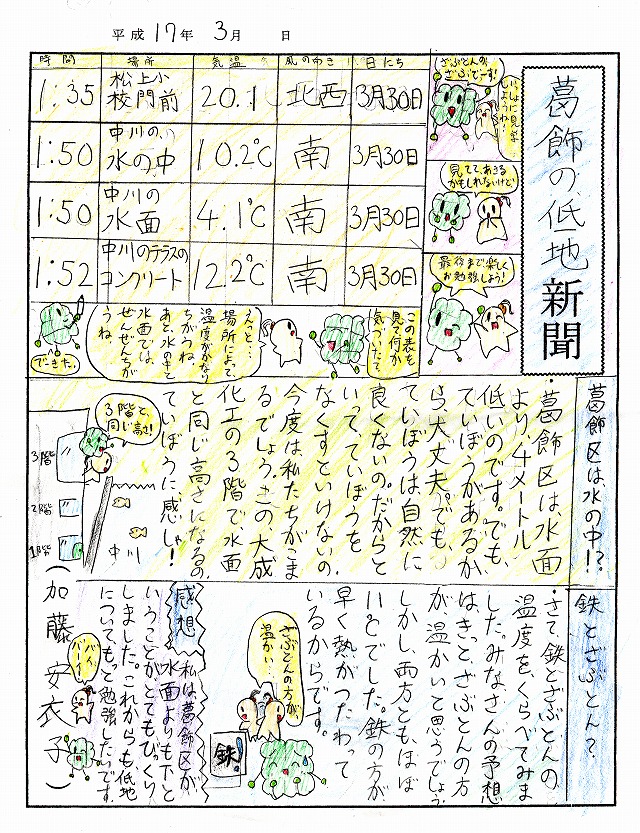 平成17年 3月 日
葛飾の低地新聞
ざぶとんのざぶでーす!
いっしょに見学しようね!
見てて、あきるかもしれないけど
最後まで楽しくお勉強しよう!
時間 場所 気温 風のむき 日にち
1:35 松上小校門前 20.1 北西 3月30日
1:50 中川の水の中 10.2℃ 南 3月30日
1:50 中川の水面 4.1℃ 南 3月30日
1:52 中川のテラスのコンクリート 12.2℃ 南 3月30日
この表を見て何か気づいたて
えっと…
場所によって、
温度がかなり
ちがうね。
あと、水の中と
水面では、
ぜんぜんちが
うね
できた。
葛飾区は水の中!?
・葛飾区は水面
より、4メートル
低いのです。でも、
ていぼうがあるか
ら、大丈夫。でも、
ていぼうは自然に
良くないの。だからと
いって、ていぼうを
なくすといけないの。
今度は私たちがこま
るでしょう。この、大成
化工の3階で、水面
と同じ高さになるの。
ていぼうに、感しゃ!
3階と、同じ高さ!
3階
2階
1階
中川
鉄とざぶとん?
・さて、鉄とざぶとんの
温度を、くらべてみま
した。みなさんの予想
はきっと、ざぶとんの方
が温かいと思うでしょう。
しかし、両方ともほぼ
11℃でした。鉄の方が
早く熱がつたわって
いるからです。
ざぶとんの方が温かい…
鉄!
感想
私は葛飾区が
水面よりも下と
いうことがとてもびっくり
しました。これからも低地
についてもっと勉強したいです。
バイバーイ!
(加藤 安衣子)